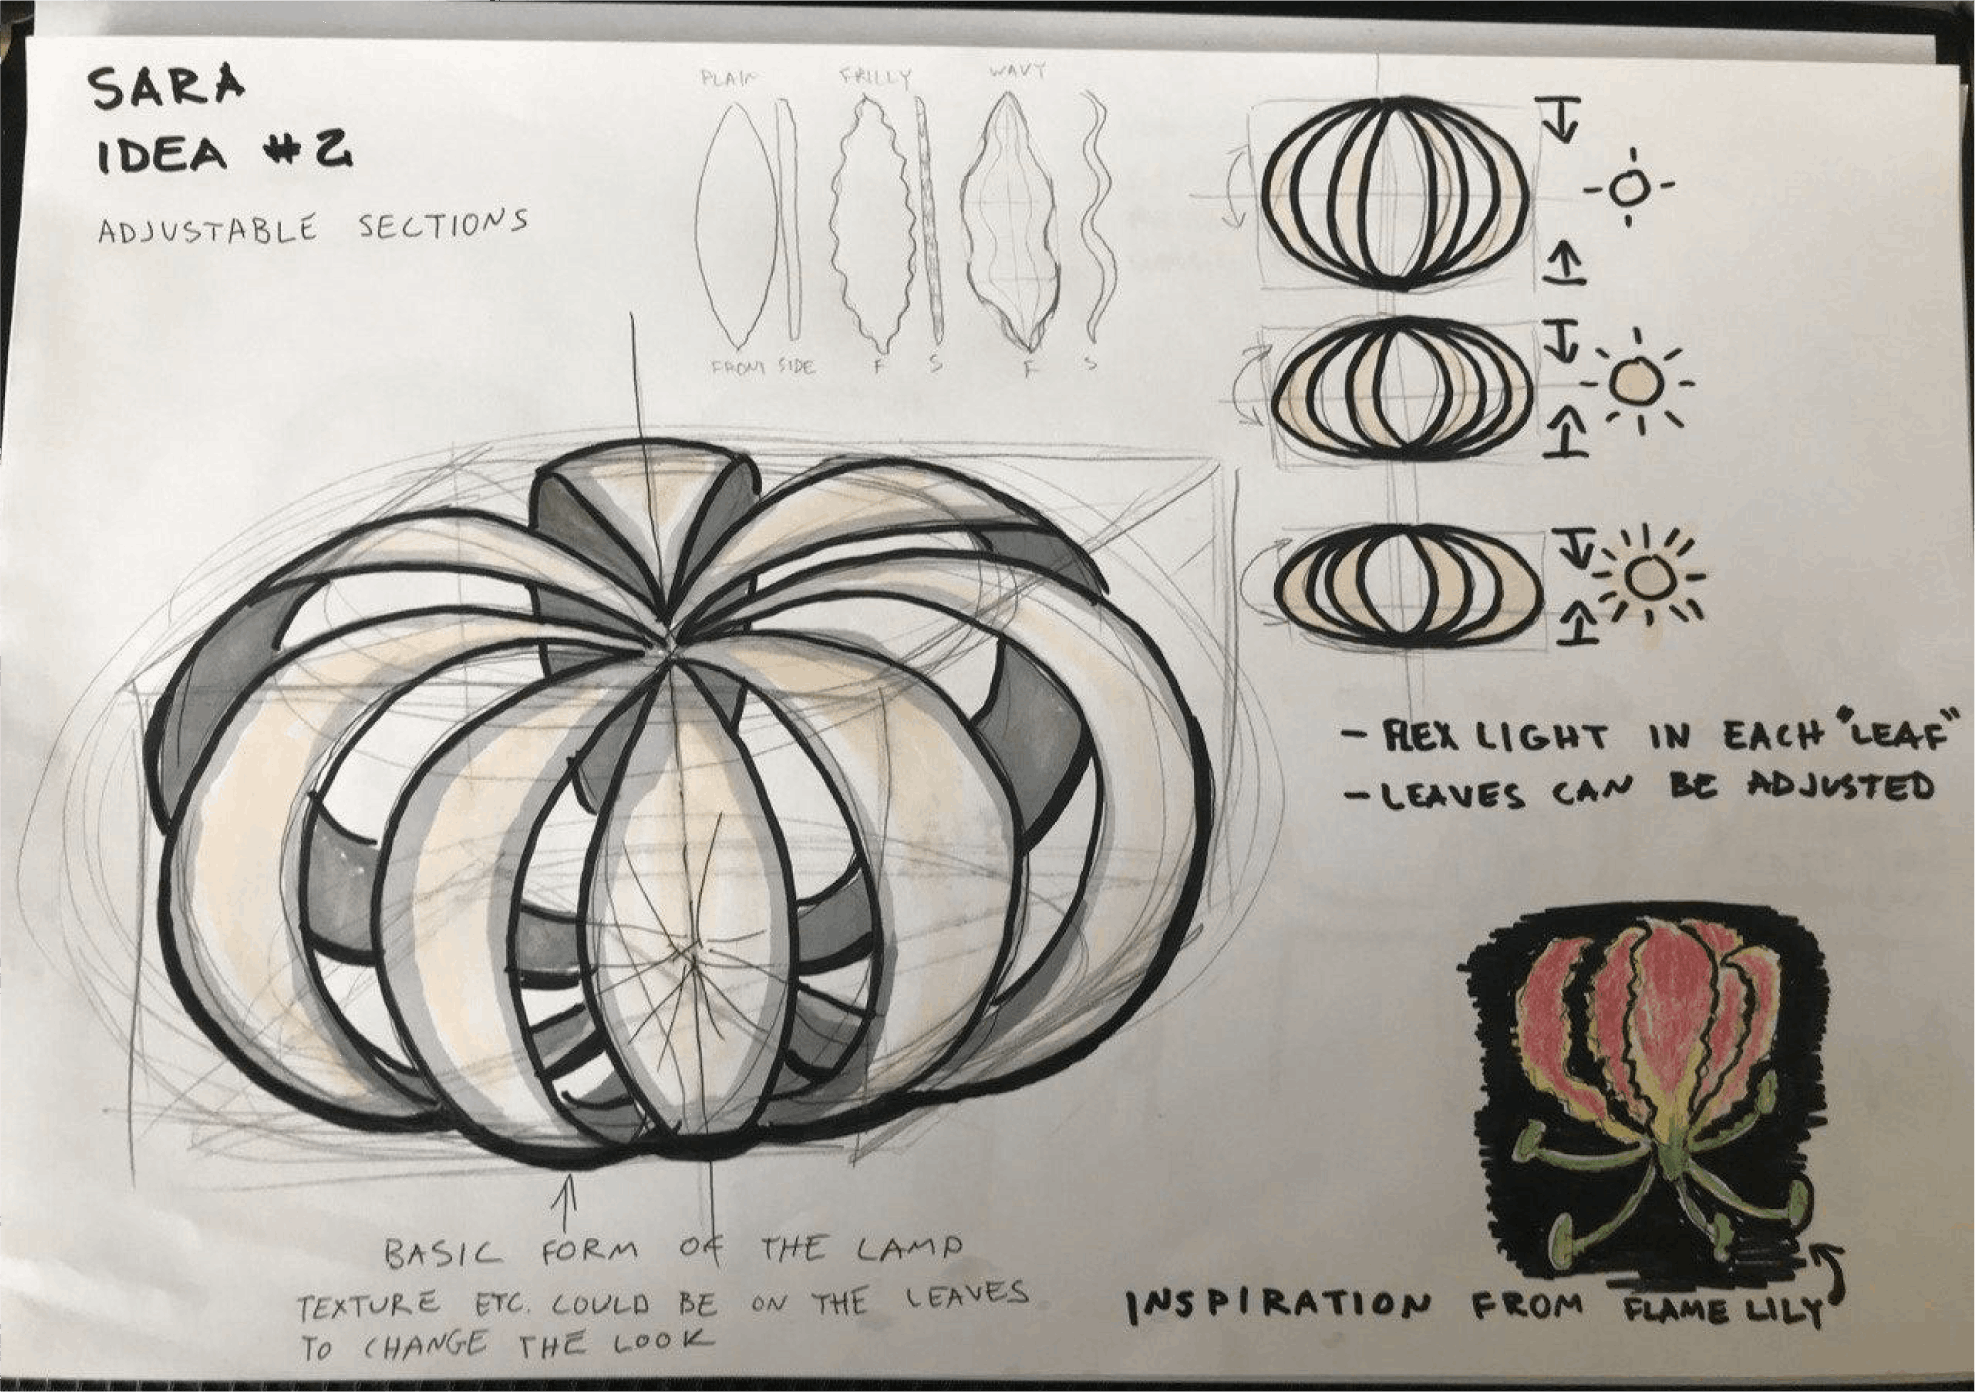 SARA
IDEA #2
ADJUSTABLE SECTIONS
PLAIN
FRILLY
WAVY
FRONT SIDE
F
S
F
S
- FLEX LIGHT IN EACH "LEAF"
- LEAVES CAN BE ADJUSTED
BASIC FORM OF THE LAMP
TEXTURE ETC. COULD BE ON THE LEAVES
TO CHANGE THE LOOK
INSPIRATION FROM FLAME LILY